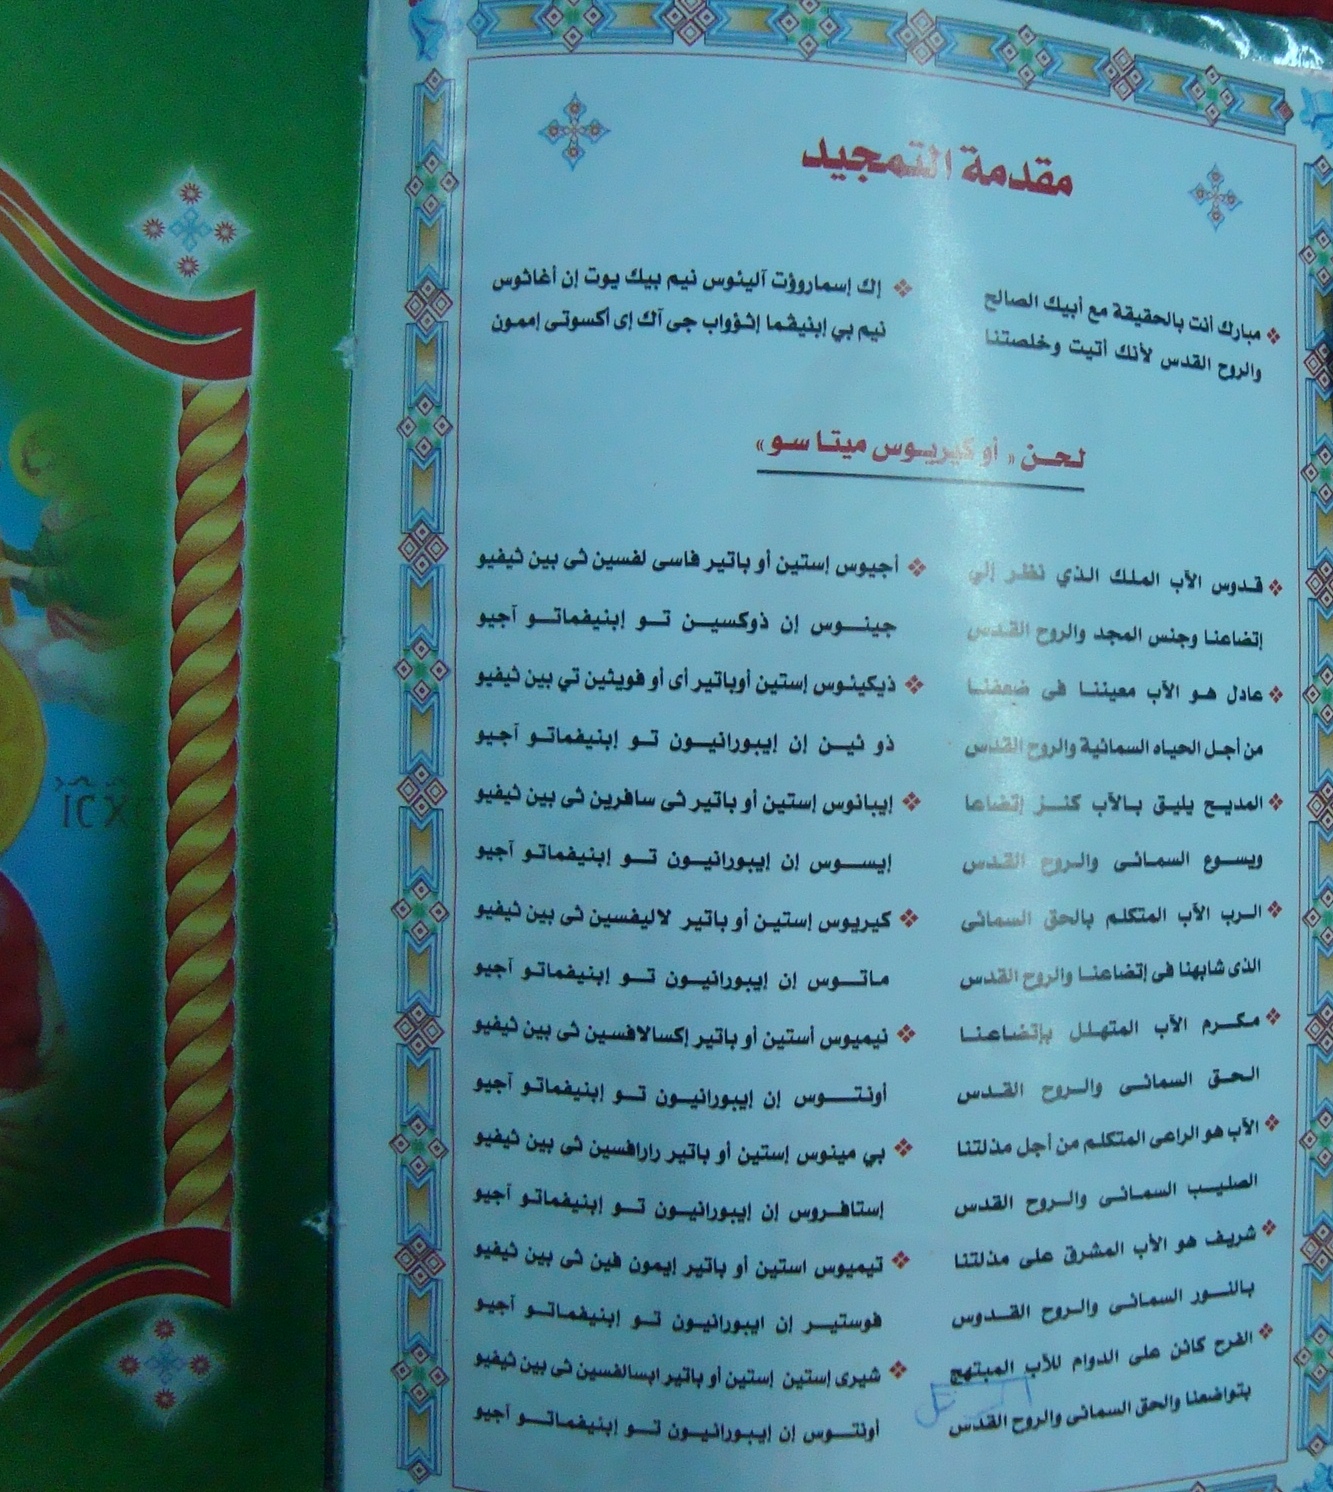 مقدمة التمجيد
مبارك أنت بالحقيقة مع أبيك الصالح
والروح القدس لأنك أتيت وخلصتنا
إك إسماروؤت آليثوس نيم بيك يوت إن أغاثوس
نيم بي إبنيڤما إثؤواب جى آك إى أكسوتى إممون
لحن « أو كيريوس ميتا سو »
قدوس الآب الملك الذي نظر إلي
إتضاعنا وجنس المجد والروح القدس
عادل هو الآب معيننا فى ضعفنا
من أجل الحياه السمائية والروح القدس
المديح يليق بالآب كنز إتضاعا
ويسوع السمائى والروح القدس
الرب الآب المتكلم بالحق السمائى
الذى شابهنا فى إتضاعنا والروح القدس
مكرم الآب المتهلل بإتضاعنا
الحق السمائى والروح القدس
الآب هو الراعى المتكلم من أجل مذلتنا
الصليب السمائى والروح القدس
شريف هو الأب المشرق على مذلتنا
بالنور السمائى والروح القدوس
الفرح كائن على الدوام للآب المبتهج
بتواضعنا والحق السمائى والروح القدس
أجيوس إستين أو باتير فاسى لفسين ثى بين ثيفيو
جينوس إن ذوكسين تو إبنيفماتو آجيو
ذيكيئوس إستين أوباتير أى أو فويثين تي بين ثيفيو
ذو ئين إن إيبورانيون تو إبنيفماتو آجيو
إيبانوس إستين أو باتير ثى سافرين ثى بين ثيفيو
إيسوس إن إيبورانيون تو إبنيفماتو آجيو
كيريوس إستين أو باتير لاليفسين ثى بين ثيفيو
ماتوس إن إيبورانيون تو إبنيفماتو آجيو
نيميوس أستين أو باتير إكسالافسين ثى بين ثيفيو
أونتوس إن إيبورانيون تو إبنيفماتو آجيو
بي مينوس إستين أو باتير رارافسين ثى بين ثيفيو
إستافروس إن إيبورانيون تو إبنيفماتو آجيو
تيميوس استين أو باتير إيمون فين ثى بين ثيفيو
فوستير إن ايبورانيون تو إبنيفماتو آجيو
شيرى إستين إستين أو باتير ابسالفسين ثى بين ثيفيو
أونتوس إن إيبورانيون تو إبنيفماتو آجيو